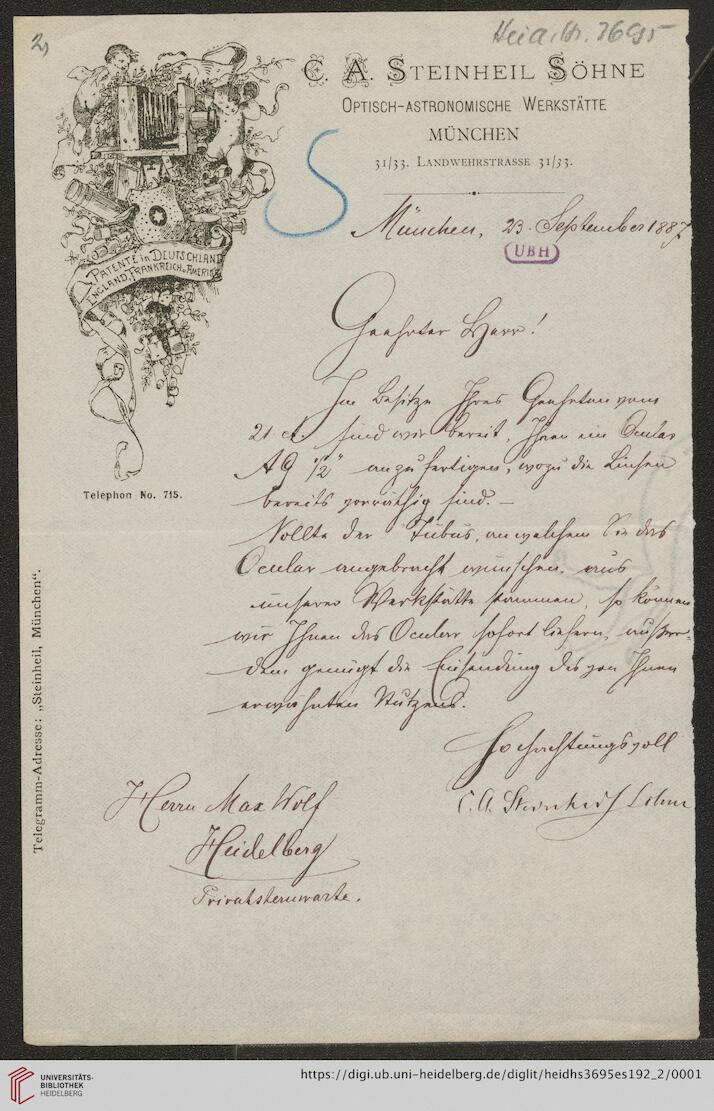 2)
Heid. Hs. 3695
C. A. STEINHEIL SÖHNE
OPTISCH-ASTRONOMISCHE WERKSTÄTTE
MÜNCHEN
31/33. LANDWEHRSTRASSE 31/33.
S
München, 23. September 1887
UBH
PATENTE in DEUTSCHLAND
ENGLAND, FRANKREICH u. AMERIKA
Telephon No. 715.
Geehrter Herr!
Im Besitze Ihres Geehrten vom
21. ct. sind wir bereit, Ihnen ein Ocular
1/2" anzufertigen, wozu die Linsen
bereits vorräthig sind. —
Sollte der Tubus, an welchem Sie das
Ocular angebracht wünschen, aus
unserer Werkstätte stammen, so können
wir Ihnen das Ocular sofort liefern,
dem genügt die Einsendung des von Ihnen
erwähnten Stutzens.
Hochachtungsvoll
C. A. Steinheil Söhne
Herrn Max Wolf
Heidelberg
Privatsternwarte.
Telegramm-Adresse: „Steinheil, München“.
UNIVERSITÄTS-
BIBLIOTHEK
HEIDELBERG
https://digi.ub.uni-heidelberg.de/diglit/heidhs3695es192_2/0001